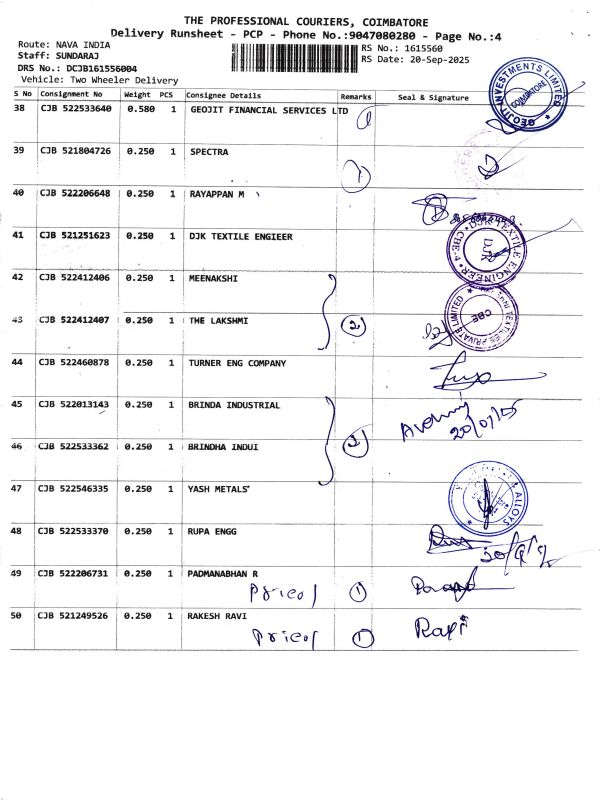 THE PROFESSIONAL COURIERS, COIMBATORE
Delivery Runsheet - PCP - Phone No.:9047080280 - Page No.:4
Route: NAVA INDIA
Staff: SUNDARAJ
DRS No.: DCJB161556004
Vehicle: Two Wheeler Delivery
RS No.: 1615560
RS Date: 20-Sep-2025
S No Consignment No Weight PCS Consignee Details Remarks Seal & Signature
38 CJB 522533640 0.580 1 GEOJIT FINANCIAL SERVICES LTD 1
GEOJIT INVESTMENTS LIMITED
COIMBATORE
39 CJB 521804726 0.250 1 SPECTRA 1
40 CJB 522206648 0.250 1 RAYAPPAN M
41 CJB 521251623 0.250 1 DJK TEXTILE ENGIEER
DJK TEXTILE ENGINEER
CBE-4
DJK
42 CJB 522412406 0.250 1 MEENAKSHI
43 CJB 522412407 0.250 1 THE LAKSHMI 2
TEXTILES PRIVATE LIMITED
CBE
44 CJB 522460878 0.250 1 TURNER ENG COMPANY
45 CJB 522013143 0.250 1 BRINDA INDUSTRIAL
46 CJB 522533362 0.250 1 BRINDHA INDUI 2
47 CJB 522546335 0.250 1 YASH METALS
ALLOYS
48 CJB 522533370 0.250 1 RUPA ENGG
49 CJB 522206731 0.250 1 PADMANABHAN R
1
50 CJB 521249526 0.250 1 RAKESH RAVI
1 Ravi